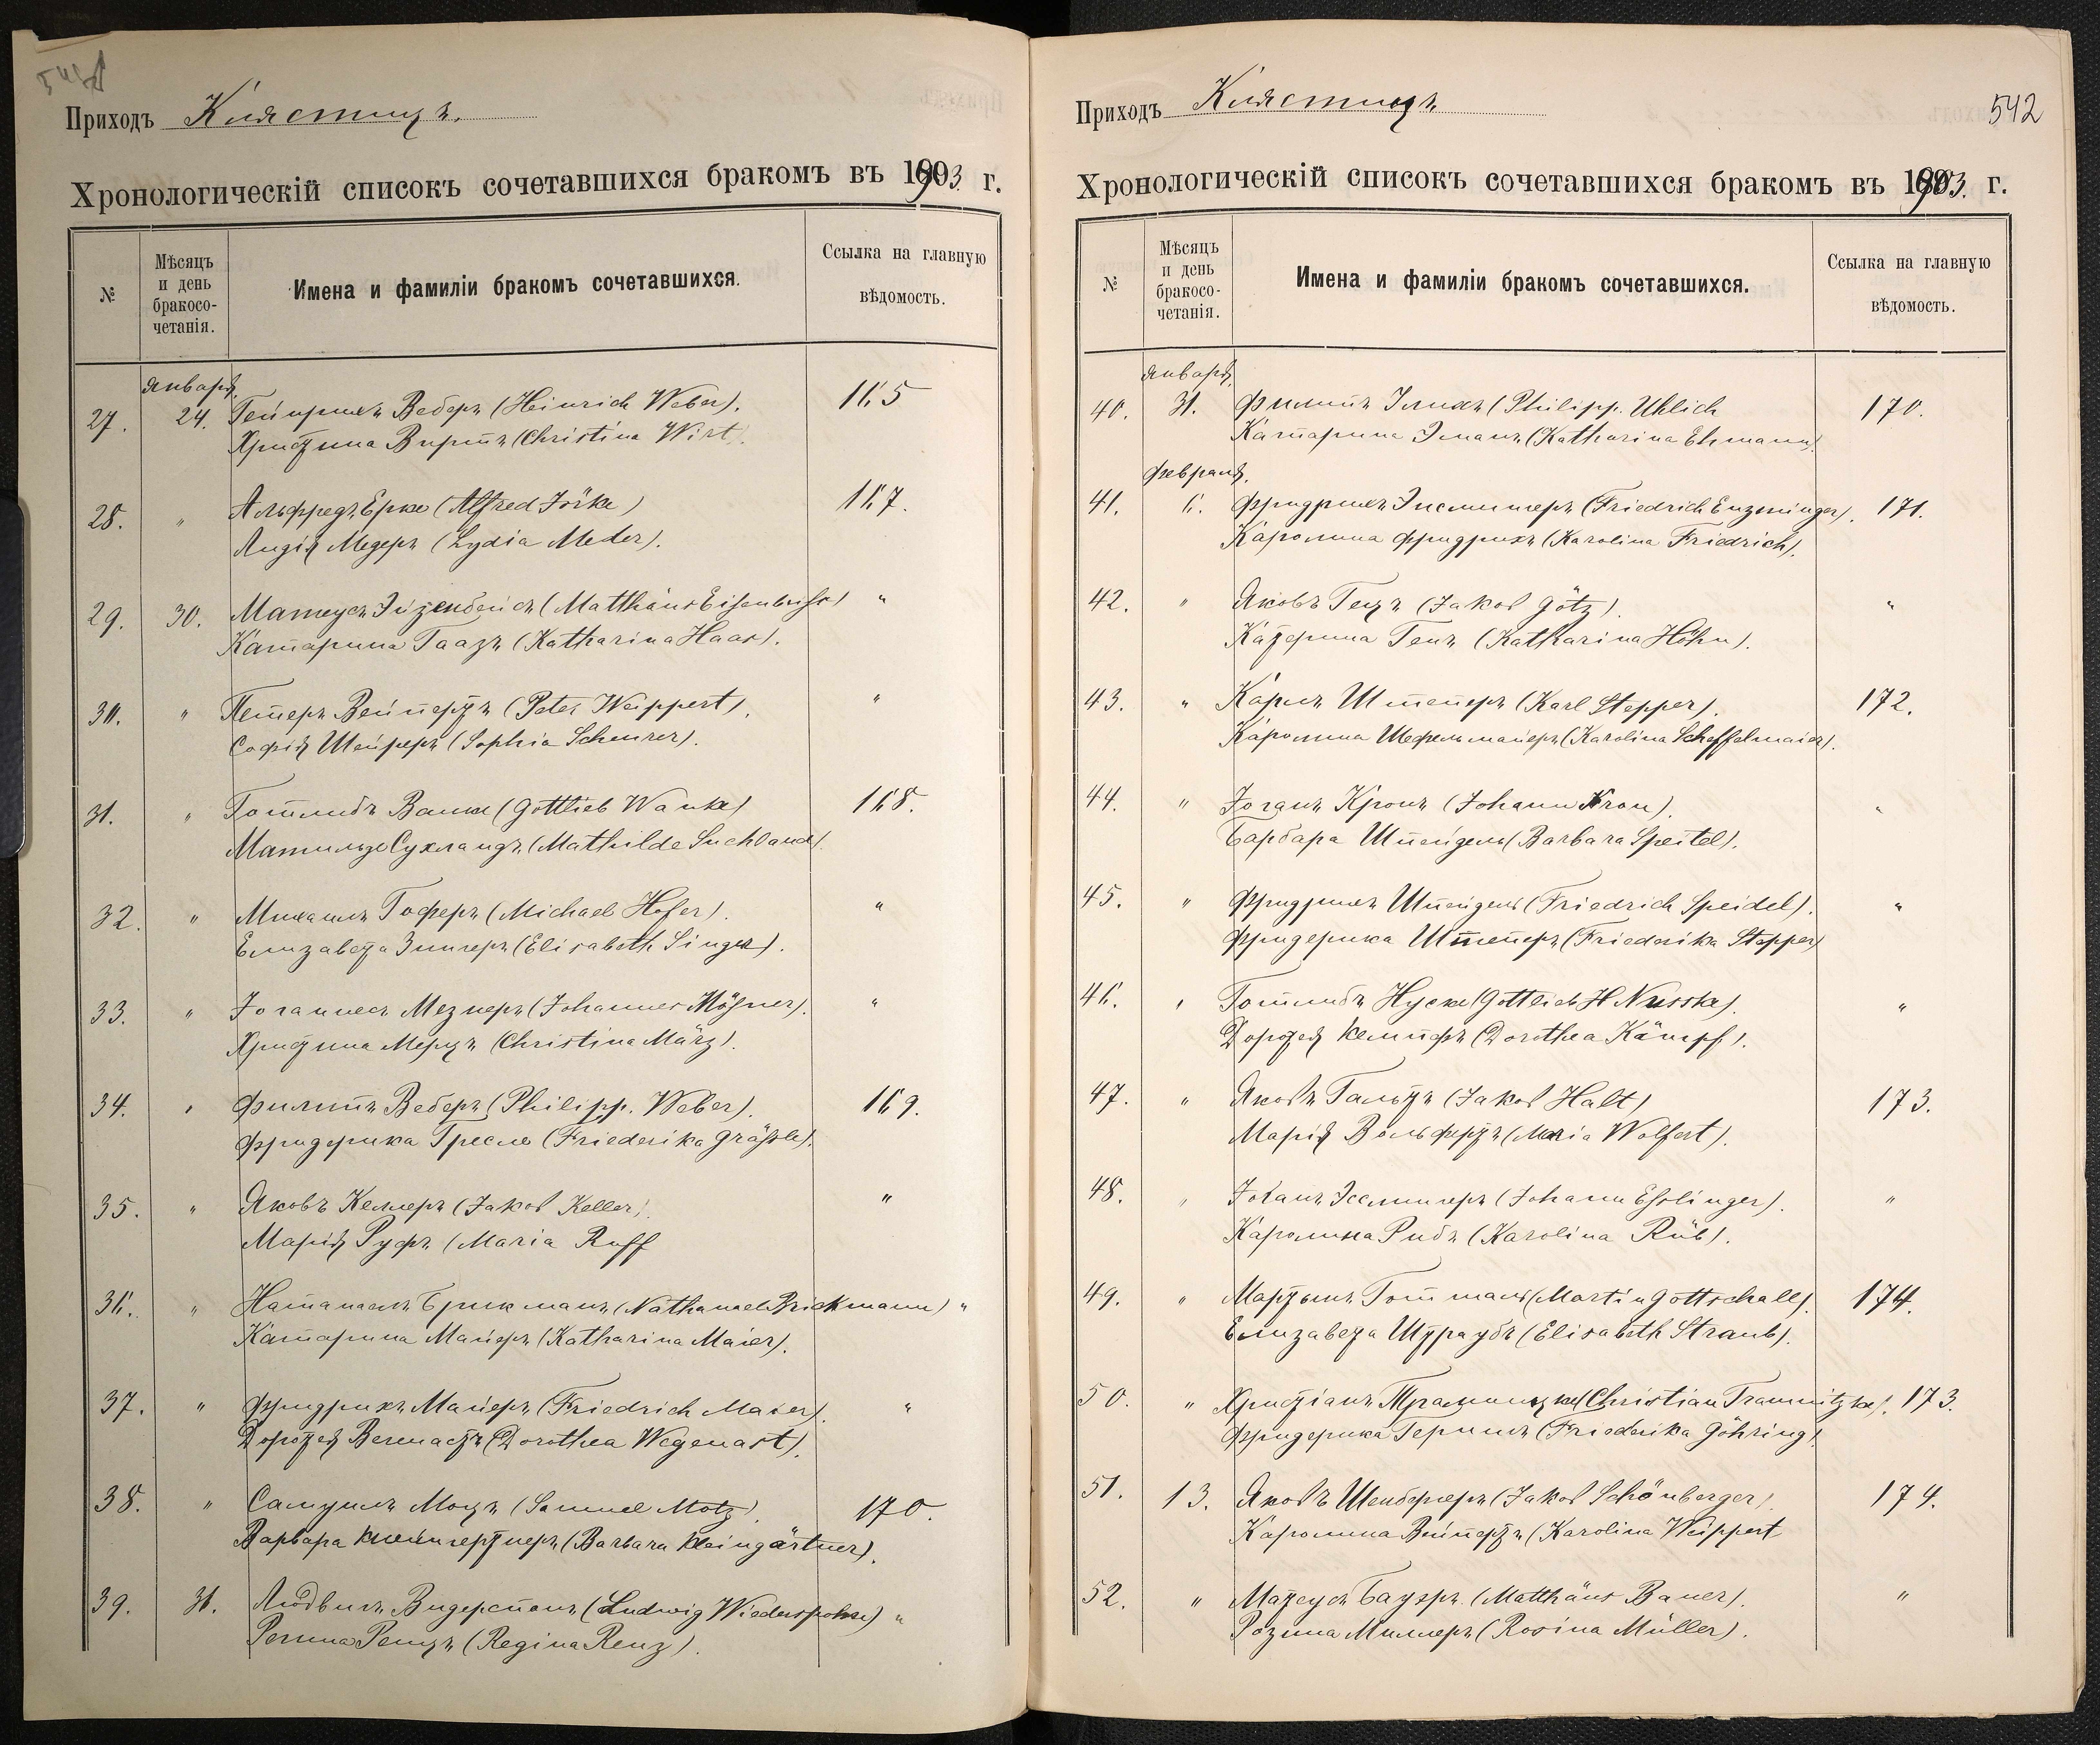 Приходъ Клястицъ.
Хронологическій списокъ сочетавшихся бракомъ въ 1903 г.
№
Мѣсяцъ
и день
бракосо-
четанія.
Имена и фамиліи бракомъ сочетавшихся.
Ссылка на главную
вѣдомость.
Января
27. 24. Гейнрихъ Веберъ (Heinrich Weber). 165
Христина Виртъ (Christina Wirt).
28. " Альфредъ Ерке (Alfred Jörke) 167.
Лидія Медеръ (Lydia Meder).
29. 30. Матеусъ Эйзенбейсъ (Matthäus Eisenbeiss) "
Катарина Гаазъ (Katharina Haas).
30. " Петеръ Вейпертъ (Peter Weippert). "
Софія Шейреръ (Sophia Scheurer).
31. " Готлибъ Ванке (Gottlieb Wanke) 168.
Матильде Сухландъ (Mathilde Suchland).
32. " Михаилъ Гоферъ (Michael Hofer). "
Елизавета Зингеръ (Elisabeth Singer).
33. " Іоганнесъ Мезнеръ (Johannes Mößner). "
Христина Мерцъ (Christina März).
34. " Филиппъ Веберъ (Philipp. Weber). 169.
Фридерика Гресле (Friederika Gräßle).
35. " Яковъ Келлеръ (Jakob Keller). "
Марія Руфъ (Maria Ruff
36. " Натанаелъ Брикманъ (Nathanael Brickmann) "
Катарина Майеръ (Katharina Maier).
37. " Фридрихъ Майеръ (Friedrich Maier). "
Доротея Вегенастъ (Dorothea Wegenast).
38. " Самуилъ Моцъ (Samuel Motz). 170.
Варвара Клейнгертнеръ (Barbara Kleingärtner).
39. 31. Людвигъ Видерспонъ (Ludwig Wiederspohn) "
Регина Ренцъ (Regina Renz).
542
Приходъ Клястицъ
Хронологическій списокъ сочетавшихся бракомъ въ 1903. г.
№
Мѣсяцъ
и день
бракосо-
четанія.
Имена и фамиліи бракомъ сочетавшихся.
Ссылка на главную
вѣдомость.
Января
40. 31. Филиппъ Улихъ (Philipp. Uhlich 170.
Катарина Эманъ (Katharina Ehmann).
Февраля
41. 6. Фридрихъ Энсмингеръ (Friedrich Enzminger). 171.
Каролина Фридрихъ (Karolina Friedrich).
42. " Яковъ Гецъ (Jakob Götz). "
Катерина Генъ (Katharina Höhn).
43. " Карлъ Штеперъ (Karl Stepper). 172.
Каролина Шефельмайеръ (Karolina Scheffelmaier).
44. " Іоганъ Кронъ (Johann Kron). "
Барбара Шпейдель (Barbara Speitel).
45. " Фридрихъ Шпейдель (Friedrich Speidel). "
Фридерика Штеперъ (Friederika Stepper)
46. " Готлибъ Нуске (Gottlieb H Nusske). "
Доротея Кемпфъ (Dorothea Kämpf).
47. " Яковъ Гальтъ (Jakob Halt) 173.
Марія Вольфертъ (Maria Wolfert).
48. " Іоганъ Эслингеръ (Johann Eßlinger). "
Каролина Рибъ (Karolina Rüb).
49. " Мартынъ Готшаль (Martin Gottschall). 174.
Елизавета Штраубъ (Elisabeth Straub).
50. " Христіанъ Трамницке (Christian Tramnitzke). 173.
Фридерика Герингъ (Friederika Göhring).
51. 13. Яковъ Шенбергеръ (Jakob Schönberger). 174.
Каролина Вейпертъ (Karolina Weippert
52. " Матеусъ Бауэръ (Matthäus Bauer). "
Розина Миллеръ (Rosina Müller).